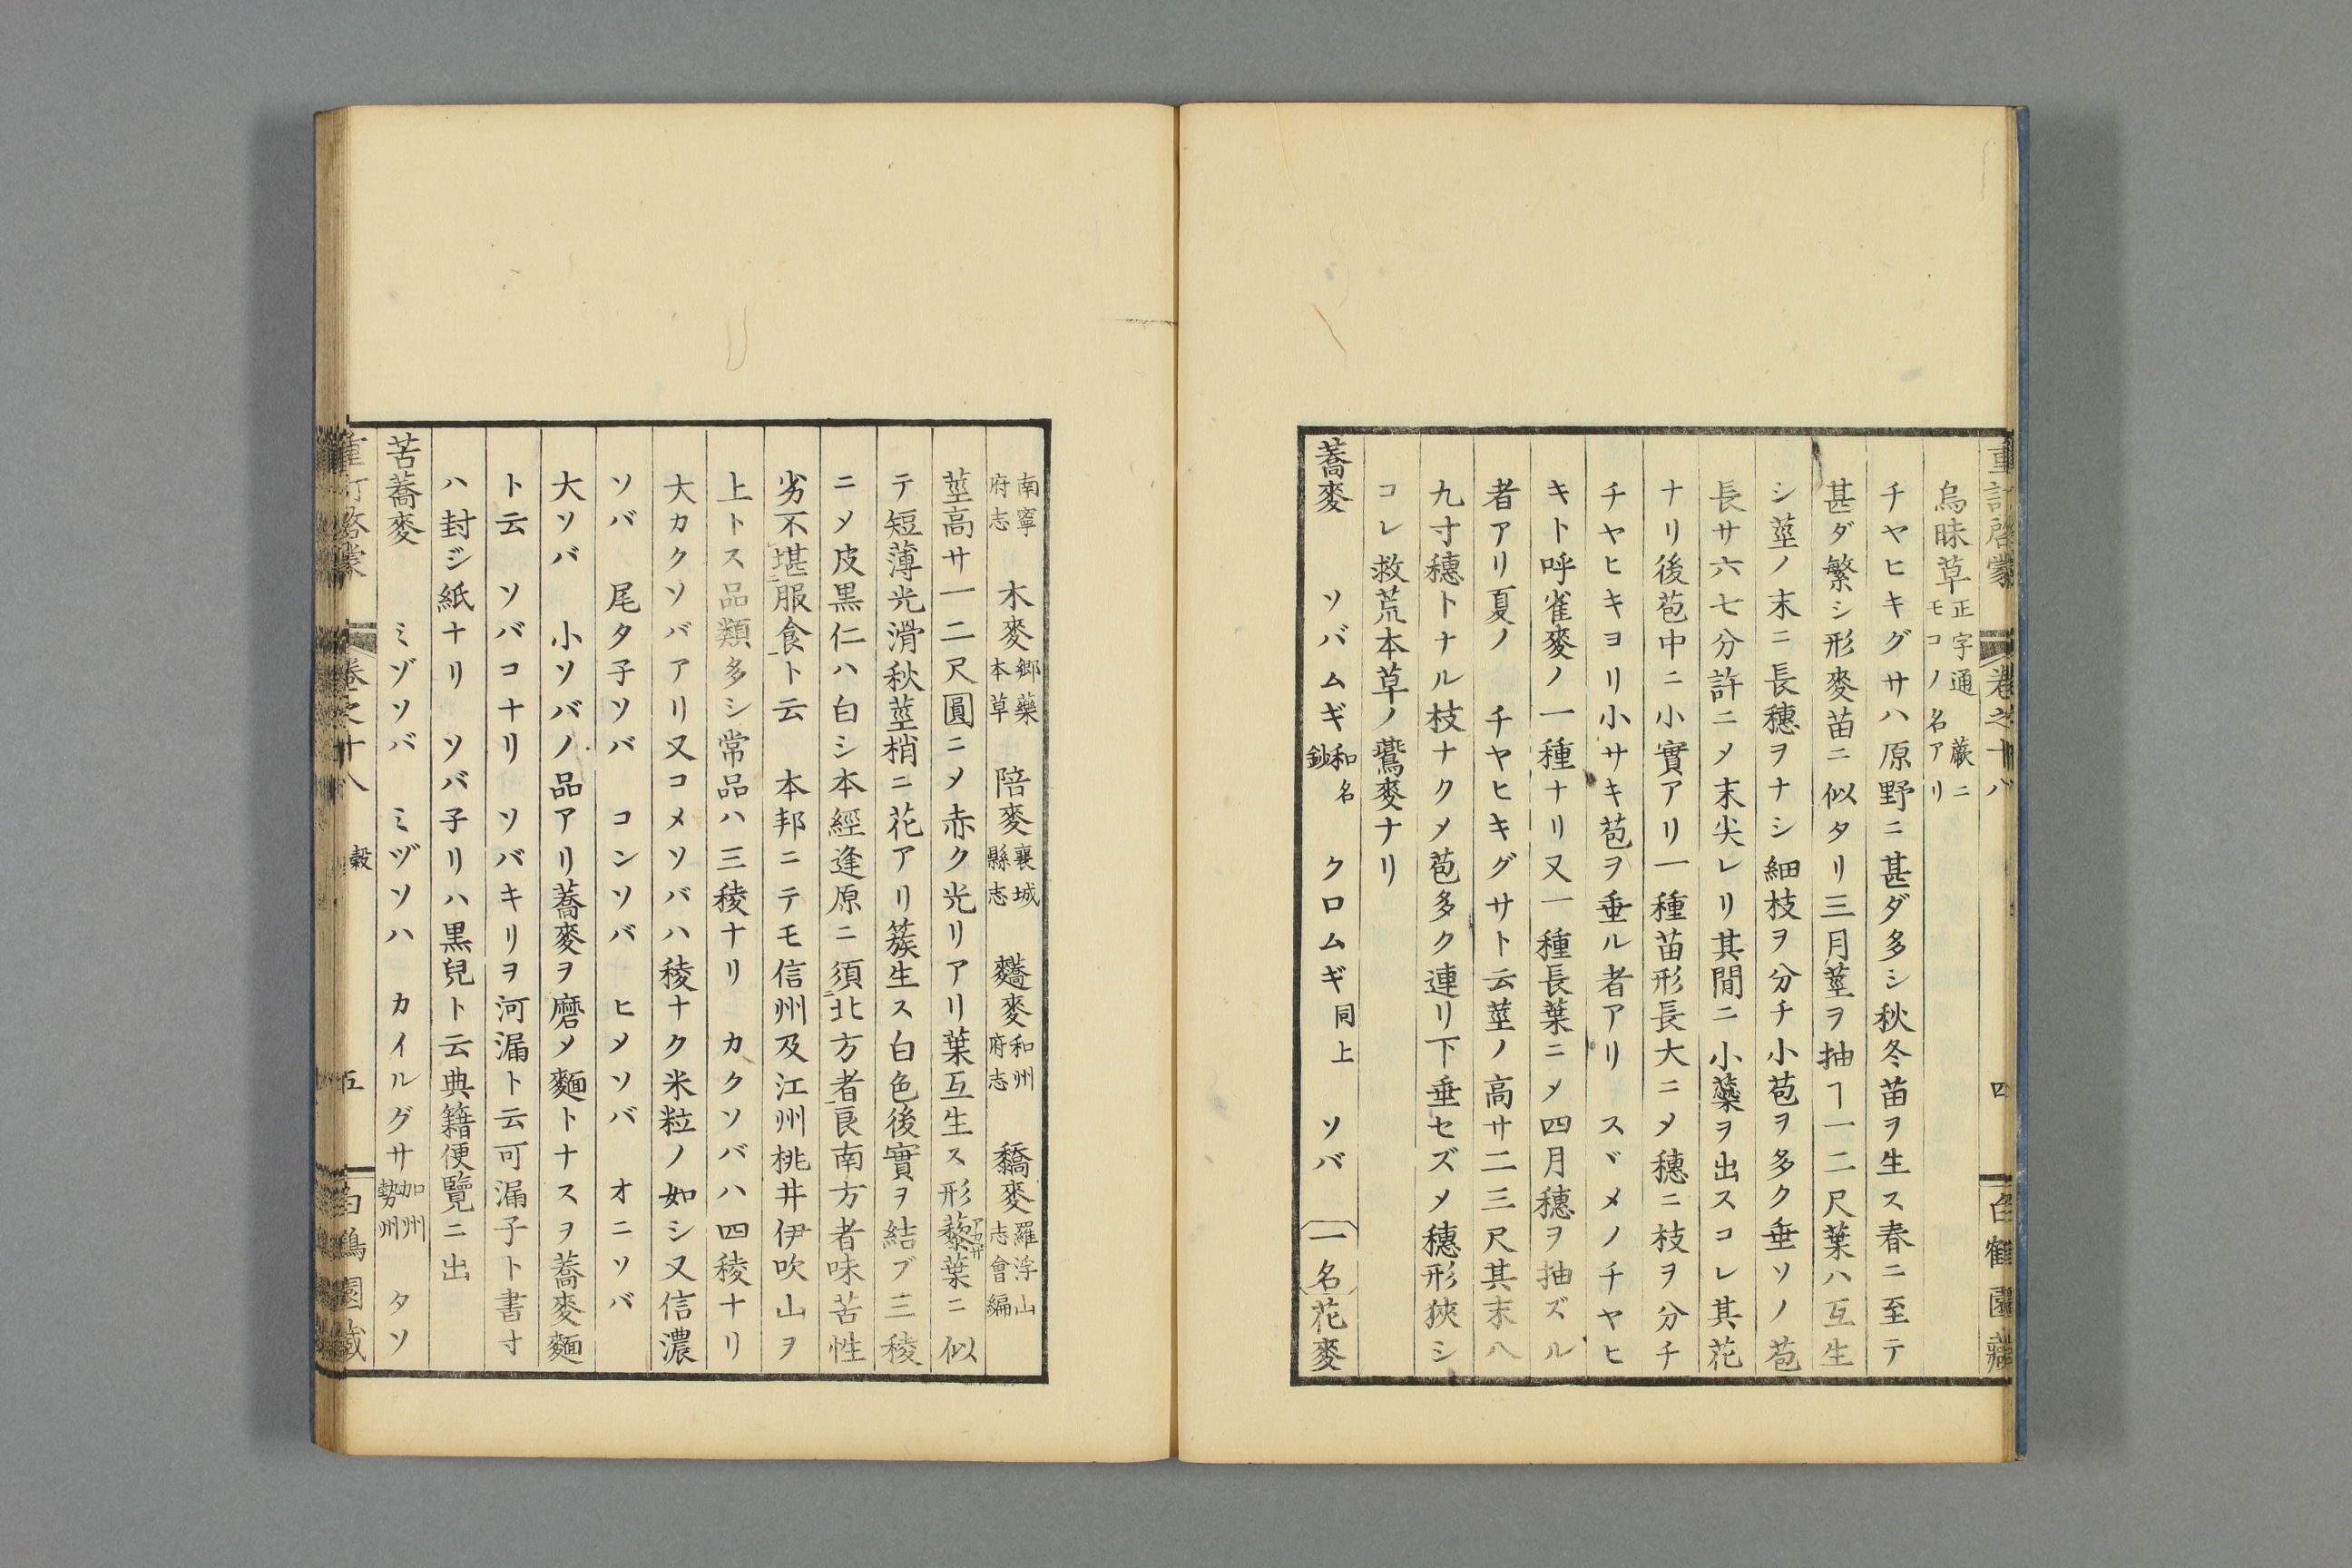 重訂啓蒙 卷之十八 四 白鶴園藏
烏昧草正字通 蕨ニモコノ名アリ
チヤヒキグサハ原野ニ甚ダ多シ秋冬苗ヲ生ス春ニ至テ
甚ダ繁シ形麥苗ニ似タリ三月莖ヲ抽ヿ一二尺葉ハ互生
シ莖ノ末ニ長穗ヲナシ細枝ヲ分チ小苞ヲ多ク垂ソノ苞
長サ六七分許ニメ末尖レリ其間ニ小蘂ヲ出スコレ其花
ナリ後苞中ニ小實アリ一種苗形長大ニメ穗ニ枝ヲ分チ
チヤヒキヨリ小サキ苞ヲ垂ル者アリ スヾメノチヤヒ
キト呼雀麥ノ一種ナリ又一種長葉ニメ四月穗ヲ抽ズル
者アリ夏ノ チヤヒキグサト云莖ノ高サ二三尺其末八
九寸穗トナル枝ナクメ苞多ク連リ下垂セズメ穗形狹シ
コレ救荒本草ノ鷰麥ナリ
蕎麥 ソバムギ和名鈔 クロムギ同上 ソバ 一名花麥
南寧府志 木麥郷藥本草 陪麥襄城縣志 䕬麥和州府志 䅵麥羅浮山志會編
莖高サ一二尺圓ニメ赤ク光リアリ葉互生ス形藜葉ニ似
テ短薄光滑秋莖梢ニ花アリ簇生ス白色後實ヲ結ブ三稜
ニメ皮黒仁ハ白シ本經逢原ニ須北方者良南方者味苦性
劣不堪服食ト云 本邦ニテモ信州及江州桃井伊吹山ヲ
上トス品類多シ常品ハ三稜ナリ カクソバハ四稜ナリ
大カクソバアリ又コメソバハ稜ナク米粒ノ如シ又信濃
ソバ 尾タ子ソバ コンソバ ヒメソバ オニソバ
大ソバ 小ソバノ品アリ蕎麥ヲ磨メ麵トナスヲ蕎麥麵
ト云 ソバコナリ ソバキリヲ河漏ト云可漏子ト書寸
ハ封ジ紙ナリ ソバ子リハ黒兒ト云典籍便覽ニ出
苦蕎麥 ミゾソバ ミヅソハ カイルグサ加州勢州 タソ
重訂啓蒙 卷之十八 穀 五 白鶴園藏